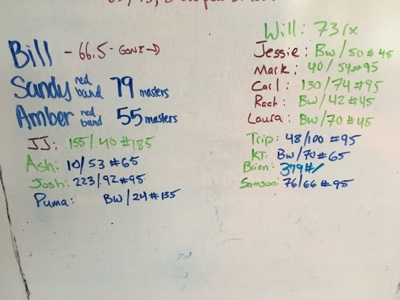 Bill - 66.5 - GONE →
Sandy red band 79 masters
Amber red band 55 masters
JJ: 155/40 #135
Ash: 10/53 #65
Josh: 223/92 #95
Puma: BW/24 #135
Will: 73 rx
Jessie: BW/50 #45
Mark: 40/54 #95
Carl: 130/74 #95
Rach: BW/42 #45
Laura: BW/70 #45
Trip: 48/100 #95
KT: BW/70 #65
Brian: 379#/
Samson: 76/66 #95